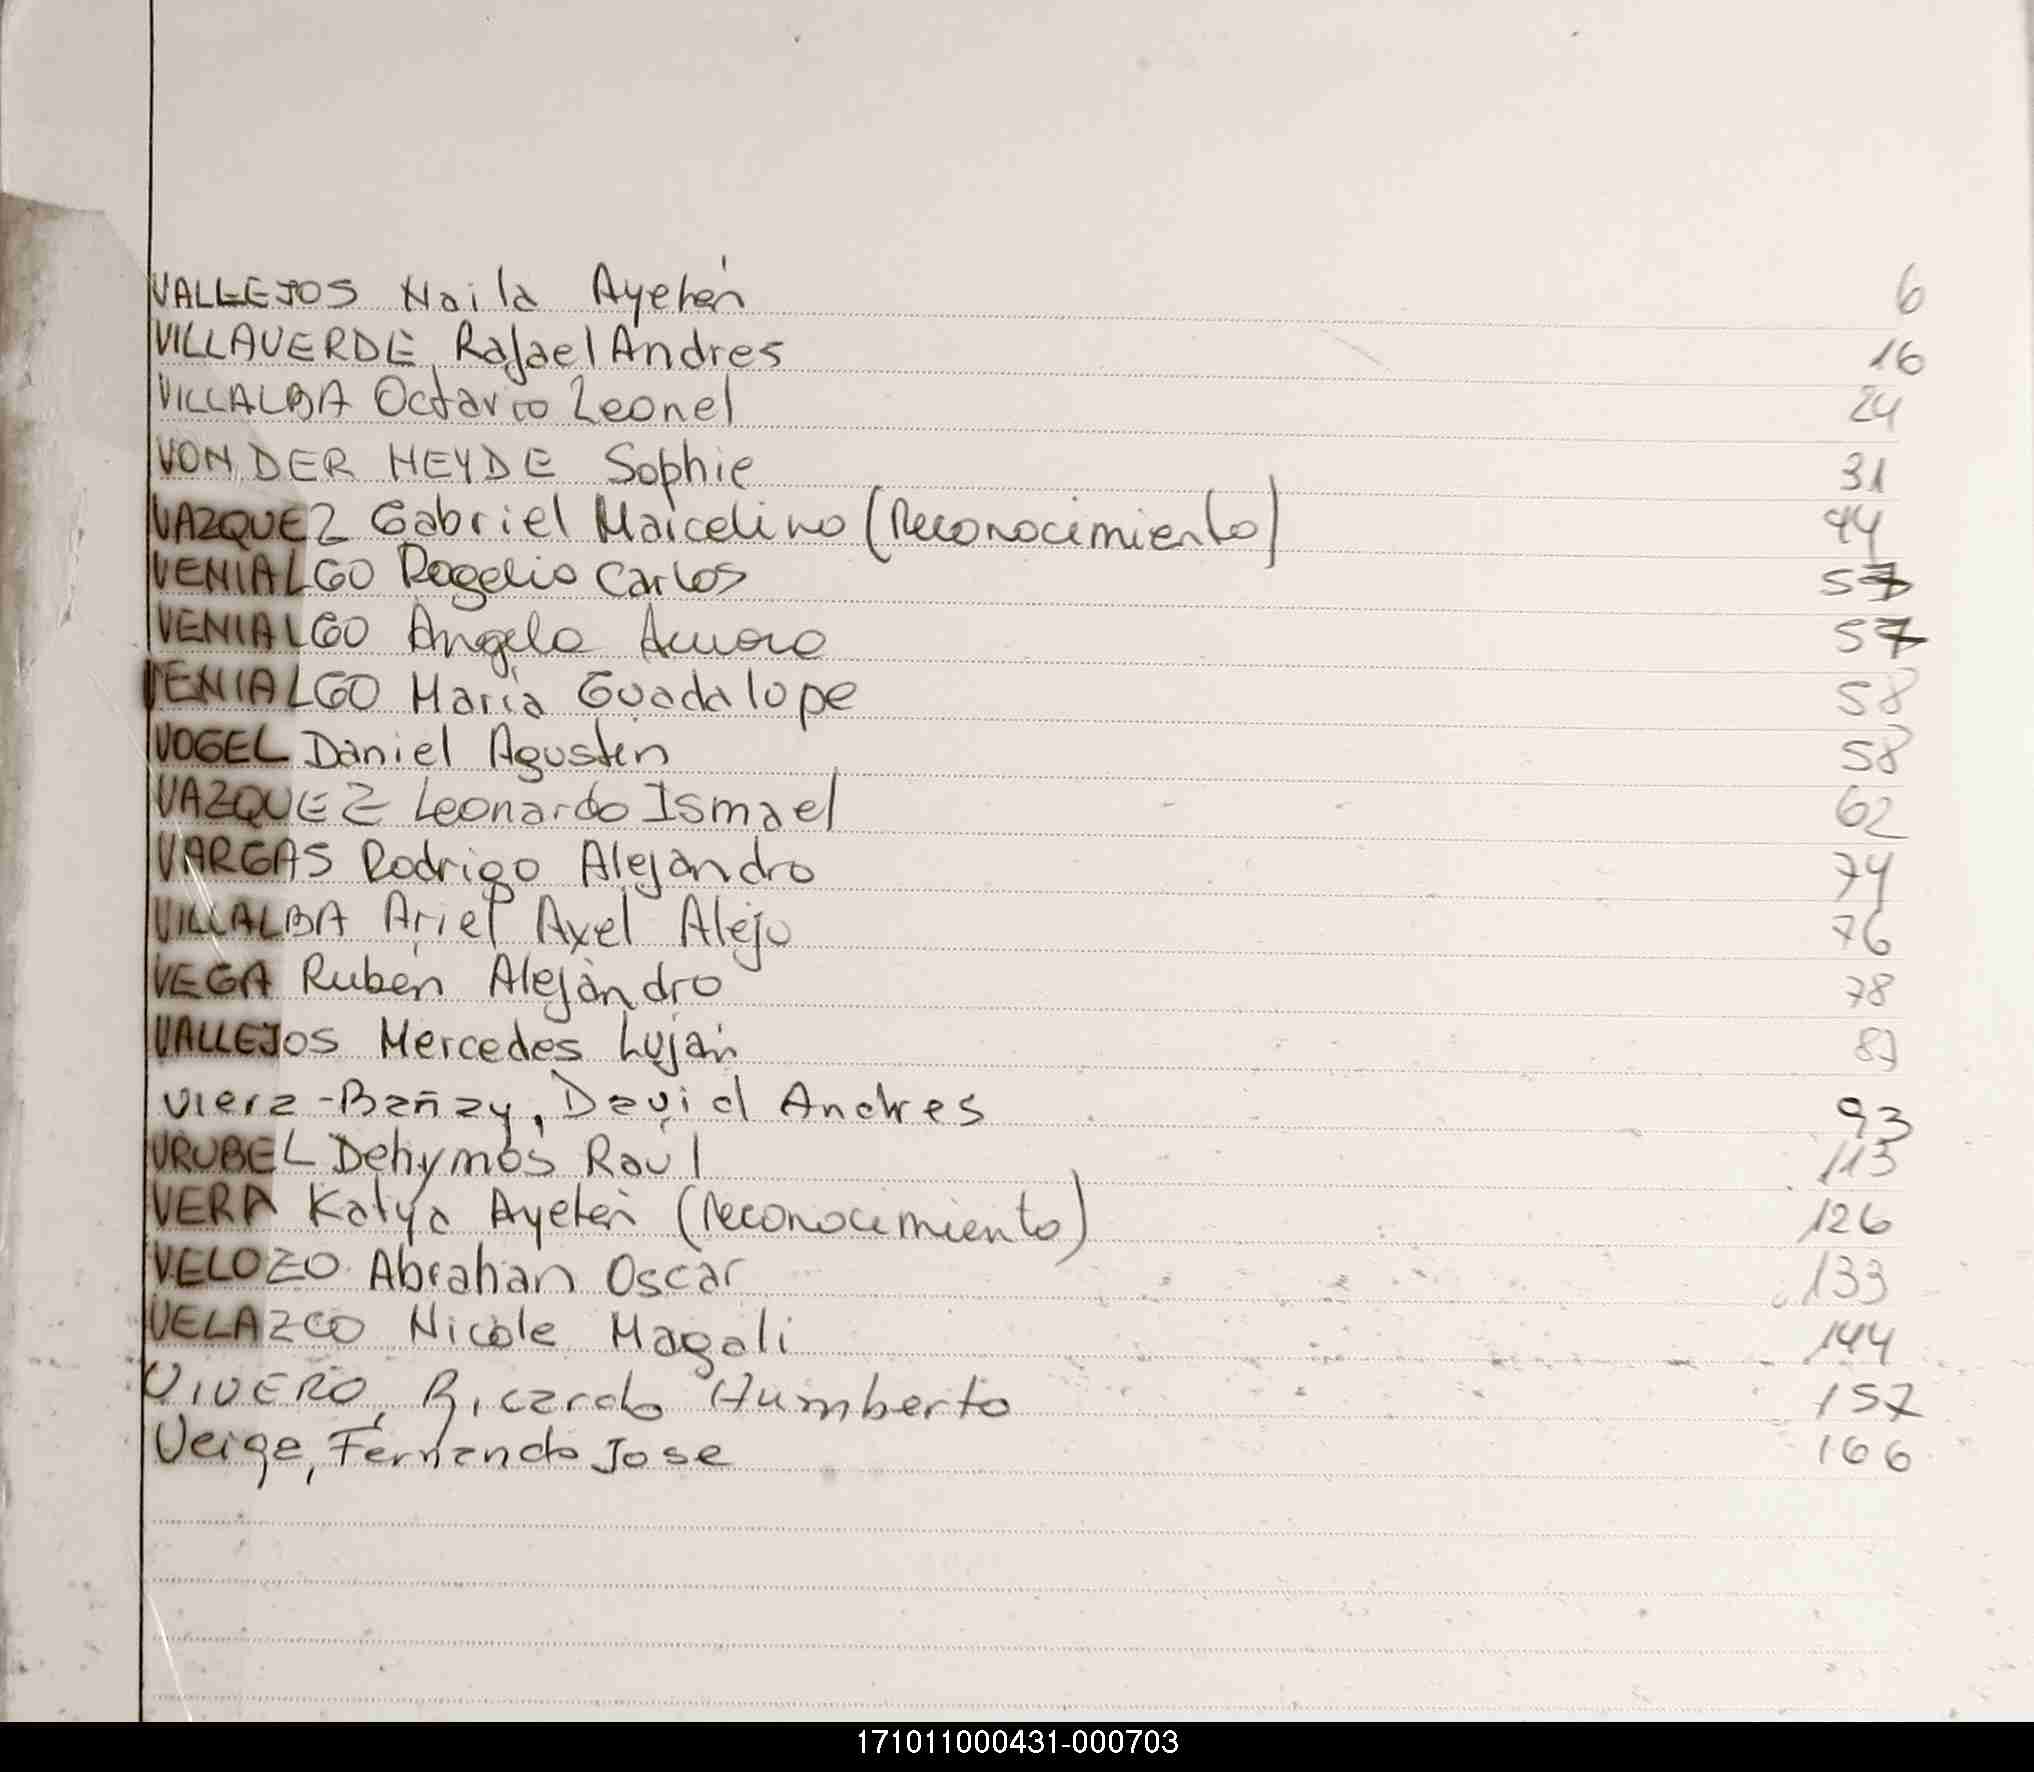 VALLEJOS Naila Ayelén 6
VILLAVERDE Rafael Andres 16
VILLALBA Octavio Leonel 24
VON DER HEYDE Sophie 31
VAZQUEZ Gabriel Marcelino (Reconocimiento) 44
VENIALGO Rogelio Carlos 57
VENIALGO Angela Aurora 57
VENIALGO María Guadalupe 58
VOGEL Daniel Agustín 58
VAZQUEZ Leonardo Ismael 62
VARGAS Rodrigo Alejandro 74
VILLALBA Ariel Axel Alejo 76
VEGA Rubén Alejandro 78
VALLEJOS Mercedes Luján
Viera-Bañay, David Andres 93
VRUBEL Dehymos Raúl 113
VERA Katya Ayelén (reconocimiento) 126
VELOZO Abrahan Oscar 133
VELAZCO Nicole Magali 144
VIVERO, Ricardo Humberto 157
Veiga, Fernando Jose 166
171011000431-000703